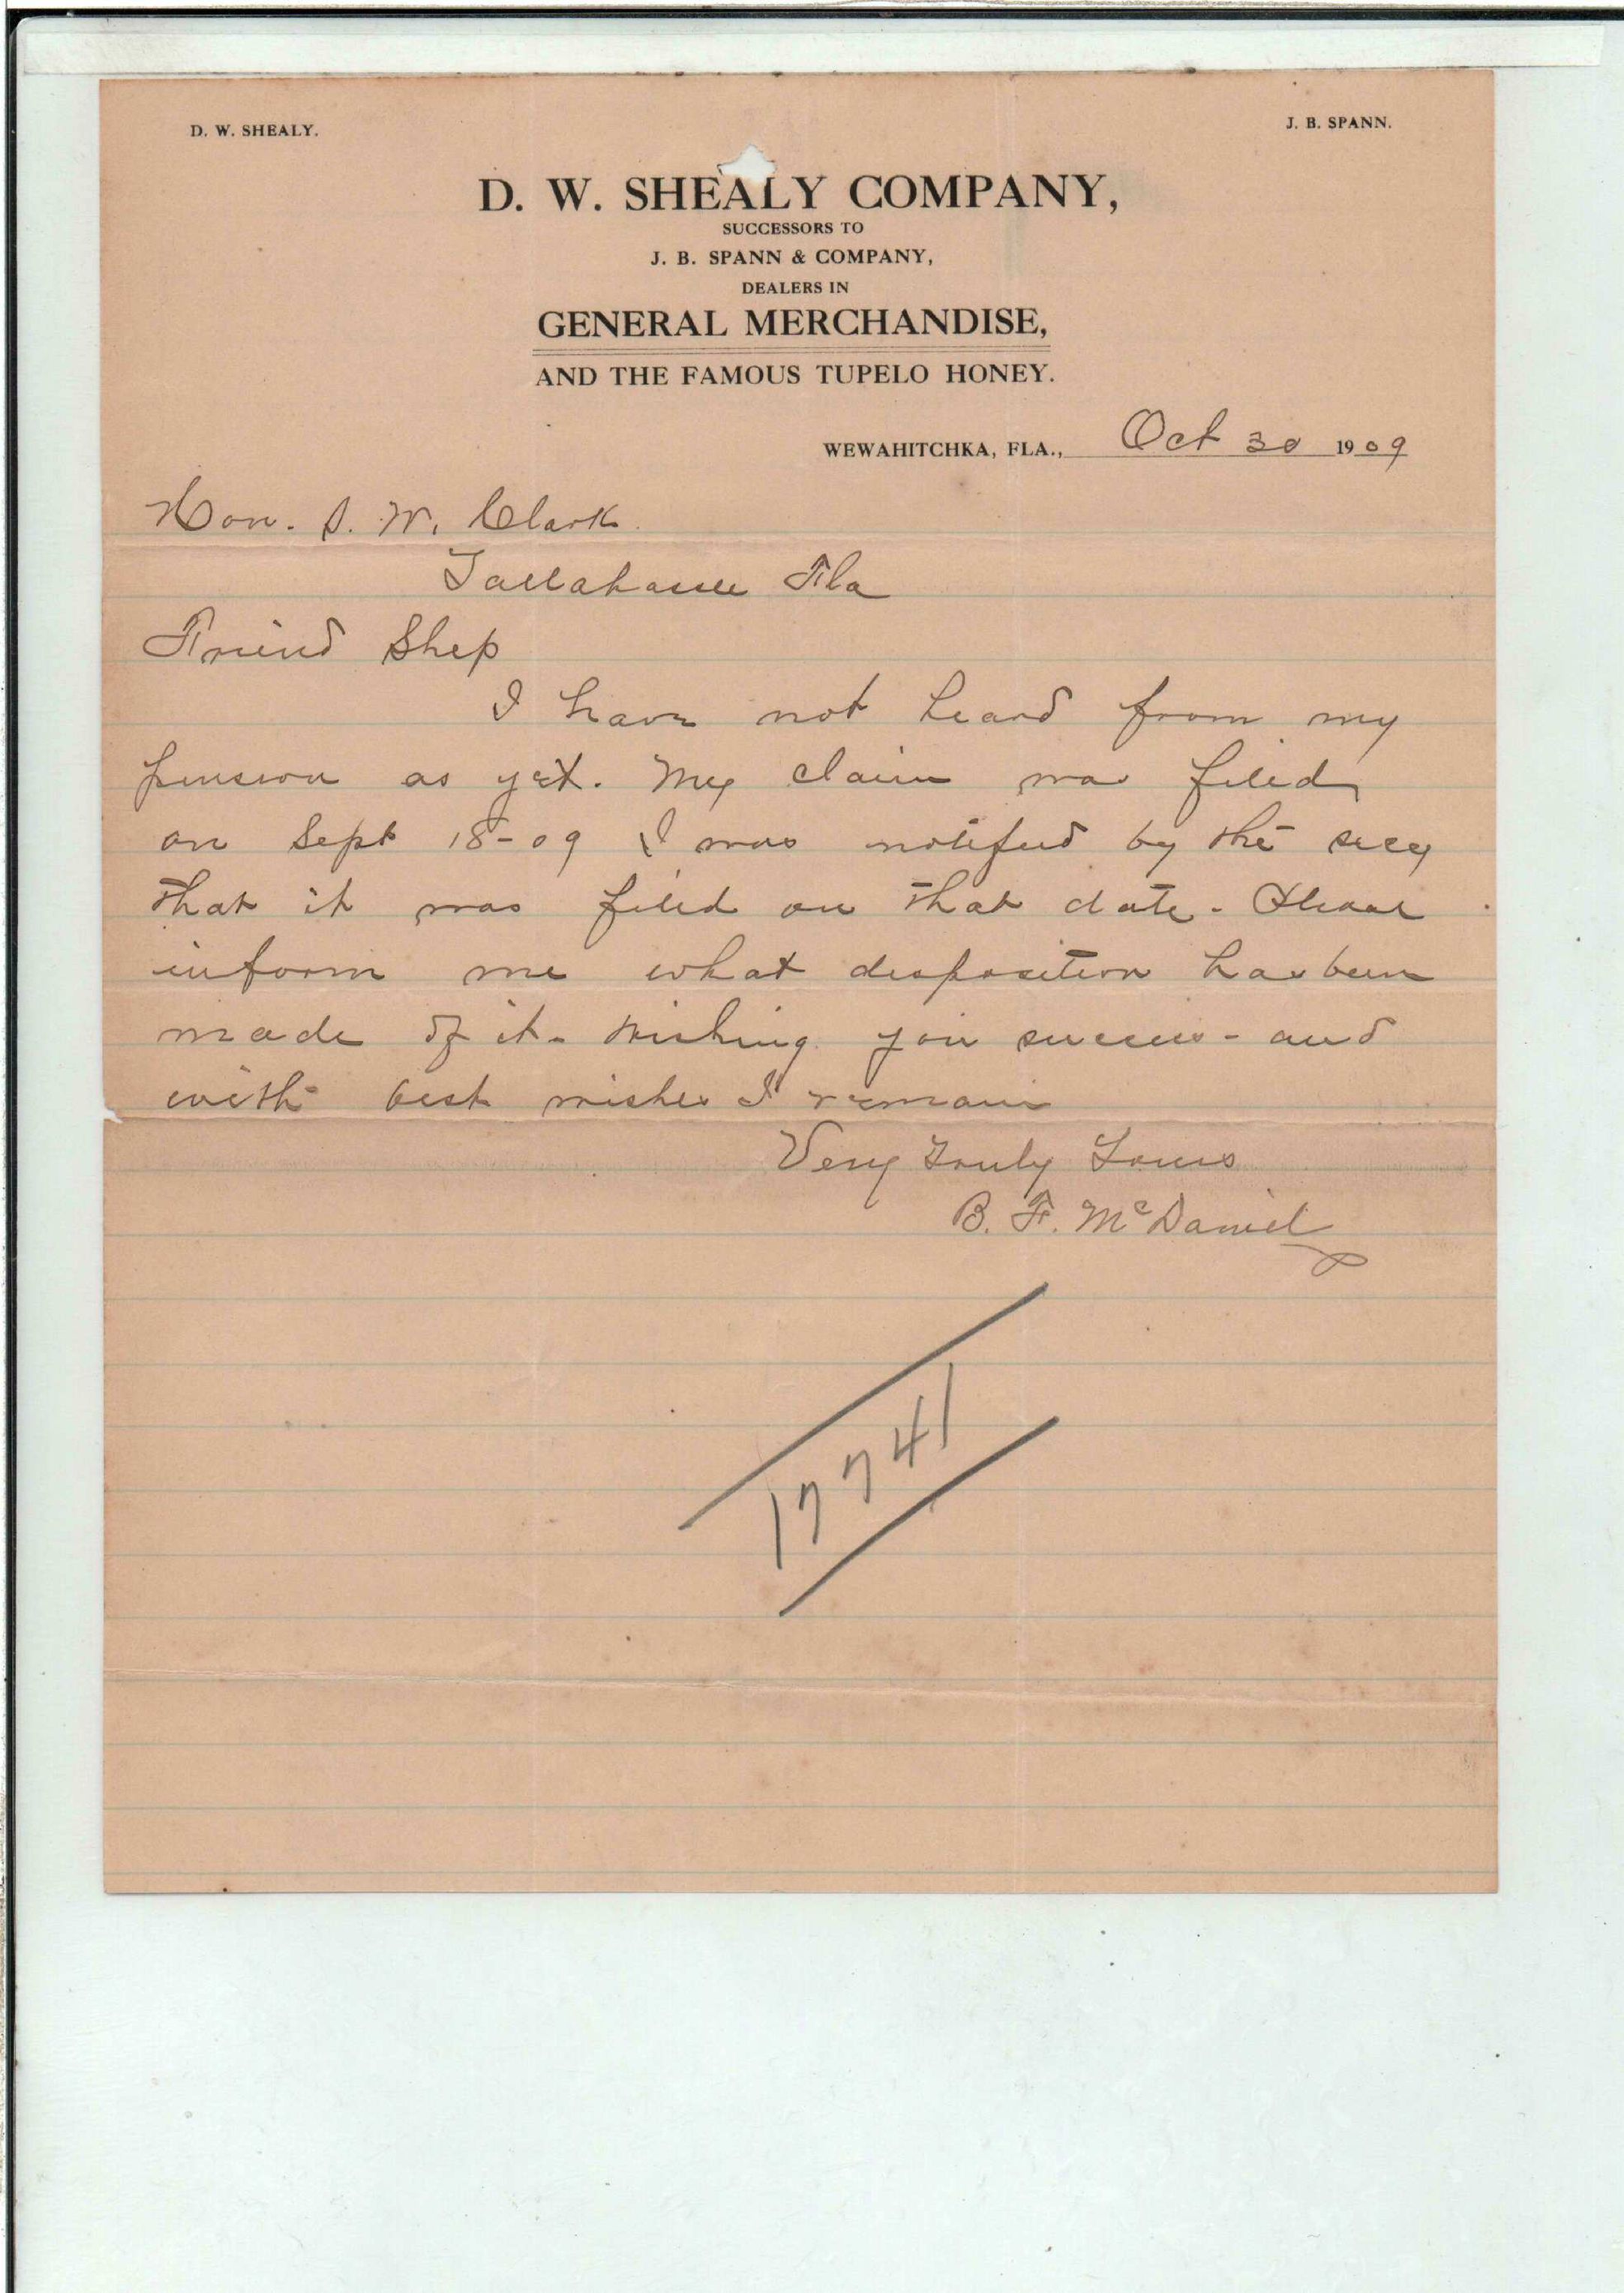 D. W. SHEALY.
J. B. SPANN.
D. W. SHEALY COMPANY,
SUCCESSORS TO
J. B. SPANN & COMPANY,
DEALERS IN
GENERAL MERCHANDISE,
AND THE FAMOUS TUPELO HONEY.
WEWAHITCHKA, FLA., Oct 30 1909
Hon. S. W. Clark.
Tallahassee Fla
Friend Shep
I have not heard from my
pension as yet. My claim was filed
on Sept 18-09 I was notified by the secy
that it was filed on that date - Please
inform me what disposition has been
made of it - Wishing you success - and
with best wishes I remain
Very Truly Yours
B. F. McDaniel
17741